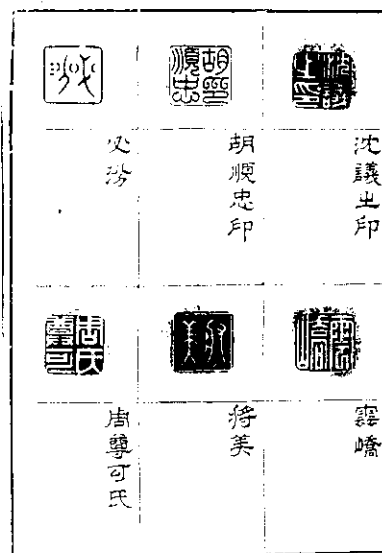 沈議之印
胡順忠印
必汾
霞嶠
将美
周尊可氏